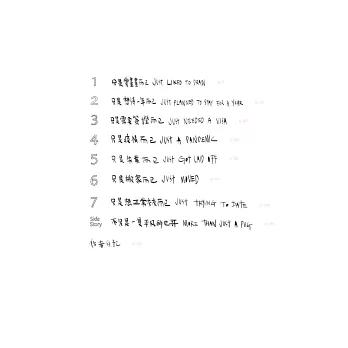 1 只是愛畫畫而已 JUST LIKED TO DRAW
2 只是想待一年而已 JUST PLANNED TO STAY FOR A YEAR
3 只是需要簽證而已 JUST NEEDED A VISA
4 只是疫情而已 JUST A PANDEMIC
5 只是失業而已 JUST GOT LAID OFF
6 只是搬家而已 JUST MOVED
7 只是想正常交友而已 JUST TRYING TO DATE
Side Story 不只是一隻 MORE THAN JUST A PUG